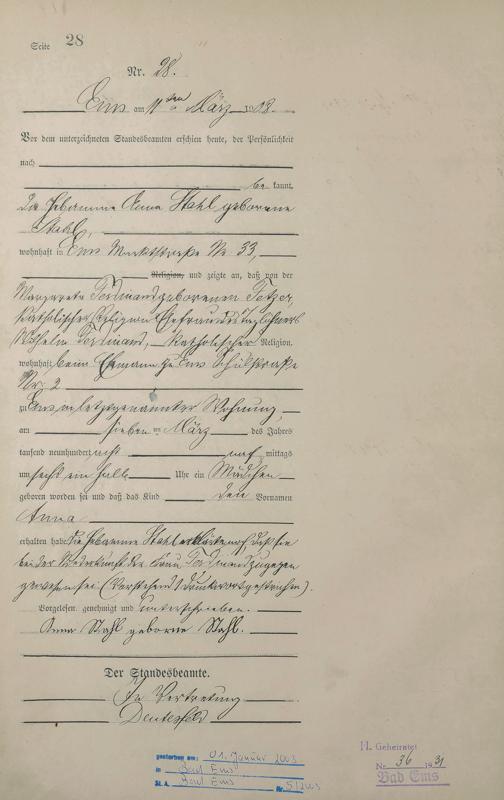 Seite 28
Nr. 28.
Ems am 11ten März 1908.
Vor dem unterzeichneten Standesbeamten erschien heute, der Persönlichkeit
nach
be kannt,
die Hebamme Anna Stahl geborene
Stahl,
wohnhaft in Ems Marktstraße Nr. 33,
Religion, und zeigte an, daß von der
Margareta geborenen
katholischer Religion Ehefrau des Taglöhners
Wilhelm katholischer Religion,
wohnhaft beim Ehemann zu Ems Schulstraße
Nr. 2
zu Ems in letztgenannter Wohnung,
am sieben ten März des Jahres
tausend neunhundert acht nach mittags
um sechs ein halb Uhr ein Mädchen
geboren worden sei und daß das Kind den Vornamen
Anna
erhalten habe. Die Hebamme Stahl erklärte noch, daß sie
bei der Niederkunft der Frau zugegen
gewesen sei. (Vorstehend 1 Druckwort gestrichen).
Vorgelesen, genehmigt und unterschrieben.
Anna Stahl geborne Stahl.
Der Standesbeamte.
In Vertretung
gestorben am: 01. Januar 2003
in Bad Ems
St. A. Bad Ems Nr. 5/2003
H. Geheiratet
Nr. 36 1931
Bad Ems